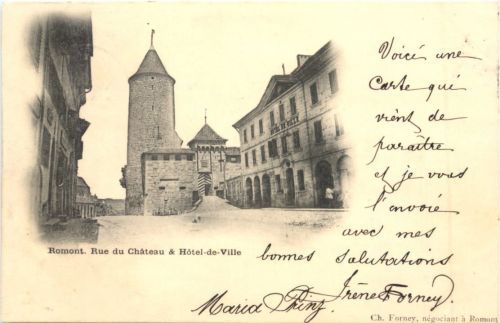 Voici une
carte qui
vient de
paraître
et je vous
l'envoie
avec mes
bonnes salutations
Irène Forney.
Maria Prinz,
HOTEL DE VILLE
Romont. Rue du Château & Hôtel-de-Ville
Ch. Forney, négociant à Romont